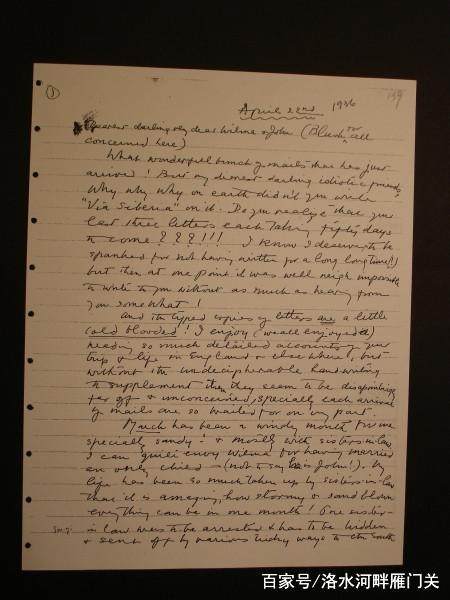 ①
139
April 22nd 1936
Dearest darling my dear Wilma & John (Blush for all
concerned here)
What wonderful bunch of mails that has just
arrived! But my dearest darling idiotic friends
Why why why on earth didn't you write
"Via Siberia" on it. Do you realize that your
last three letters each taking fifty days
to come ? ? ? !!! I know I deserve to be
spanked for not having written for a long long time!!
but then at one point it was well neigh impossible
to write to you without as much as hearing from
you somewhat!
And the typed copies of letters are a little
cold blooded! I enjoy (we all enjoyed it)
reading so much detailed accounts of your
trip & life in England & elsewhere, but
without the undecipherable handwriting
to supplement them they seem to be disappointing
far off & unconcerned, specially each arrival
of mails are so waited for on my part.
March has been a windy month for me
specially sandy! & mostly with sisters-in-law
I can quite envy Wilma for having married
an only child (not to say he is John!). My
life has been so much taken up by sisters-in-law
that it is amazing how stormy & sand blown
everything can be in one month! One sister-
in-law was to be arrested & has to be hidden
& sent off by various tricky ways to the South
百家号/洛水河畔雁门关